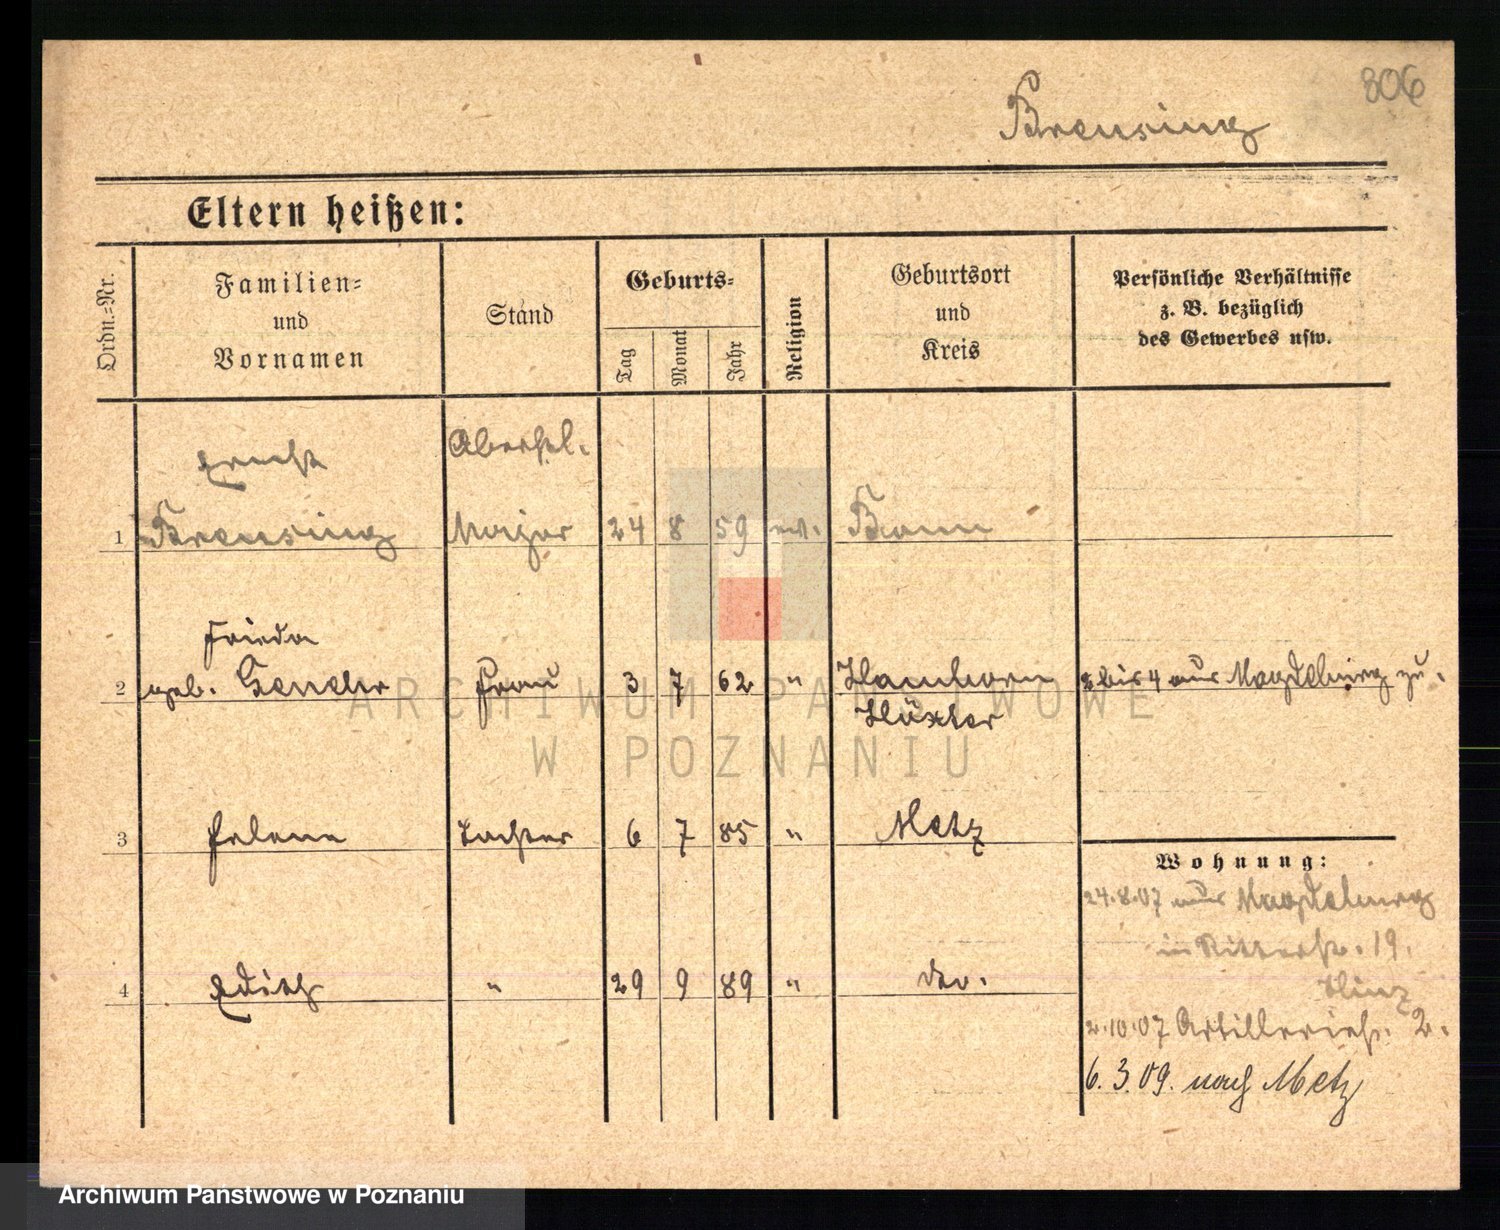 806
Brensing
Eltern heißen:
Ordn.=Nr.
Familien=
und
Vornamen
Stand
Geburts=
Tag
Monat
Jahr
Religion
Geburtsort
und
Kreis
Persönliche Verhältnisse
z. B. bezüglich
des Gewerbes usw.
Ernst
1 Brensing Major 24 8 59 ev. Bonn
Frieda
2 geb. Frau 3 7 62 " 2 bis 4 aus Magdeburg zu.
Höxter
3 Helene Tochter 6 7 85 " Metz
Wohnung:
24.8.07 aus Magdeburg
in Ritterstr. 19.
4 Edith " 29 9 89 " do.
2.10.07 Artilleriestr. 2.
6.3.09. nach Metz
ARCHIWUM PAŃSTWOWE
W POZNANIU
Archiwum Państwowe w Poznaniu